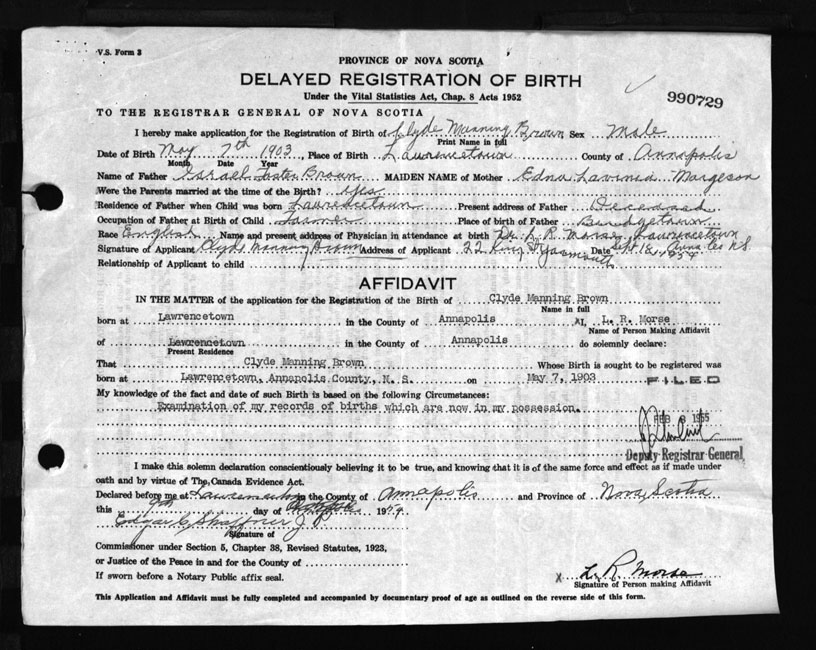 V.S. Form 3
PROVINCE OF NOVA SCOTIA
DELAYED REGISTRATION OF BIRTH
Under the Vital Statistics Act, Chap. 8 Acts 1952
990729
TO THE REGISTRAR GENERAL OF NOVA SCOTIA
I hereby make application for the Registration of Birth of Clyde Manning Brown Sex Male
Print Name in full
Date of Birth May 7th 1903, Place of Birth Lawrencetown County of Annapolis
Month Date Year
Name of Father Foster Brown MAIDEN NAME of Mother Edna Lavinia Margeson
Were the Parents married at the time of the Birth? yes
Residence of Father when Child was born Lawrencetown Present address of Father Deceased
Occupation of Father at Birth of Child Farmer Place of birth of Father Bridgetown
Race English Name and present address of Physician in attendance at birth Dr. L. R. Morse, Lawrencetown
Signature of Applicant Clyde Manning Brown Address of Applicant 22 King St Yarmouth Date Sept. 18, 1954 Anna Co N.S.
Relationship of Applicant to child
AFFIDAVIT
IN THE MATTER of the application for the Registration of the Birth of Clyde Manning Brown
Name in full
born at Lawrencetown in the County of Annapolis I, L. R. Morse
Name of Person Making Affidavit
of Lawrencetown in the County of Annapolis do solemnly declare:
Present Residence
That Clyde Manning Brown Whose Birth is sought to be registered was
born at Lawrencetown, Annapolis County, N. S. on May 7, 1903 FILED
My knowledge of the fact and date of such Birth is based on the following Circumstances:
Examination of my records of births which are now in my possession.
FEB 8 1955
Deputy Registrar General
I make this solemn declaration conscientiously believing it to be true, and knowing that it is of the same force and effect as if made under
oath and by virtue of The Canada Evidence Act.
Declared before me at Lawrencetown in the County of Annapolis and Province of Nova Scotia
this 7th day of 1954
Edgar C Shaffner J P
Signature of
Commissioner under Section 5, Chapter 38, Revised Statutes, 1923,
or Justice of the Peace in and for the County of
If sworn before a Notary Public affix seal.
X L. R. Morse
Signature of Person making Affidavit
This Application and Affidavit must be fully completed and accompanied by documentary proof of age as outlined on the reverse side of this form.